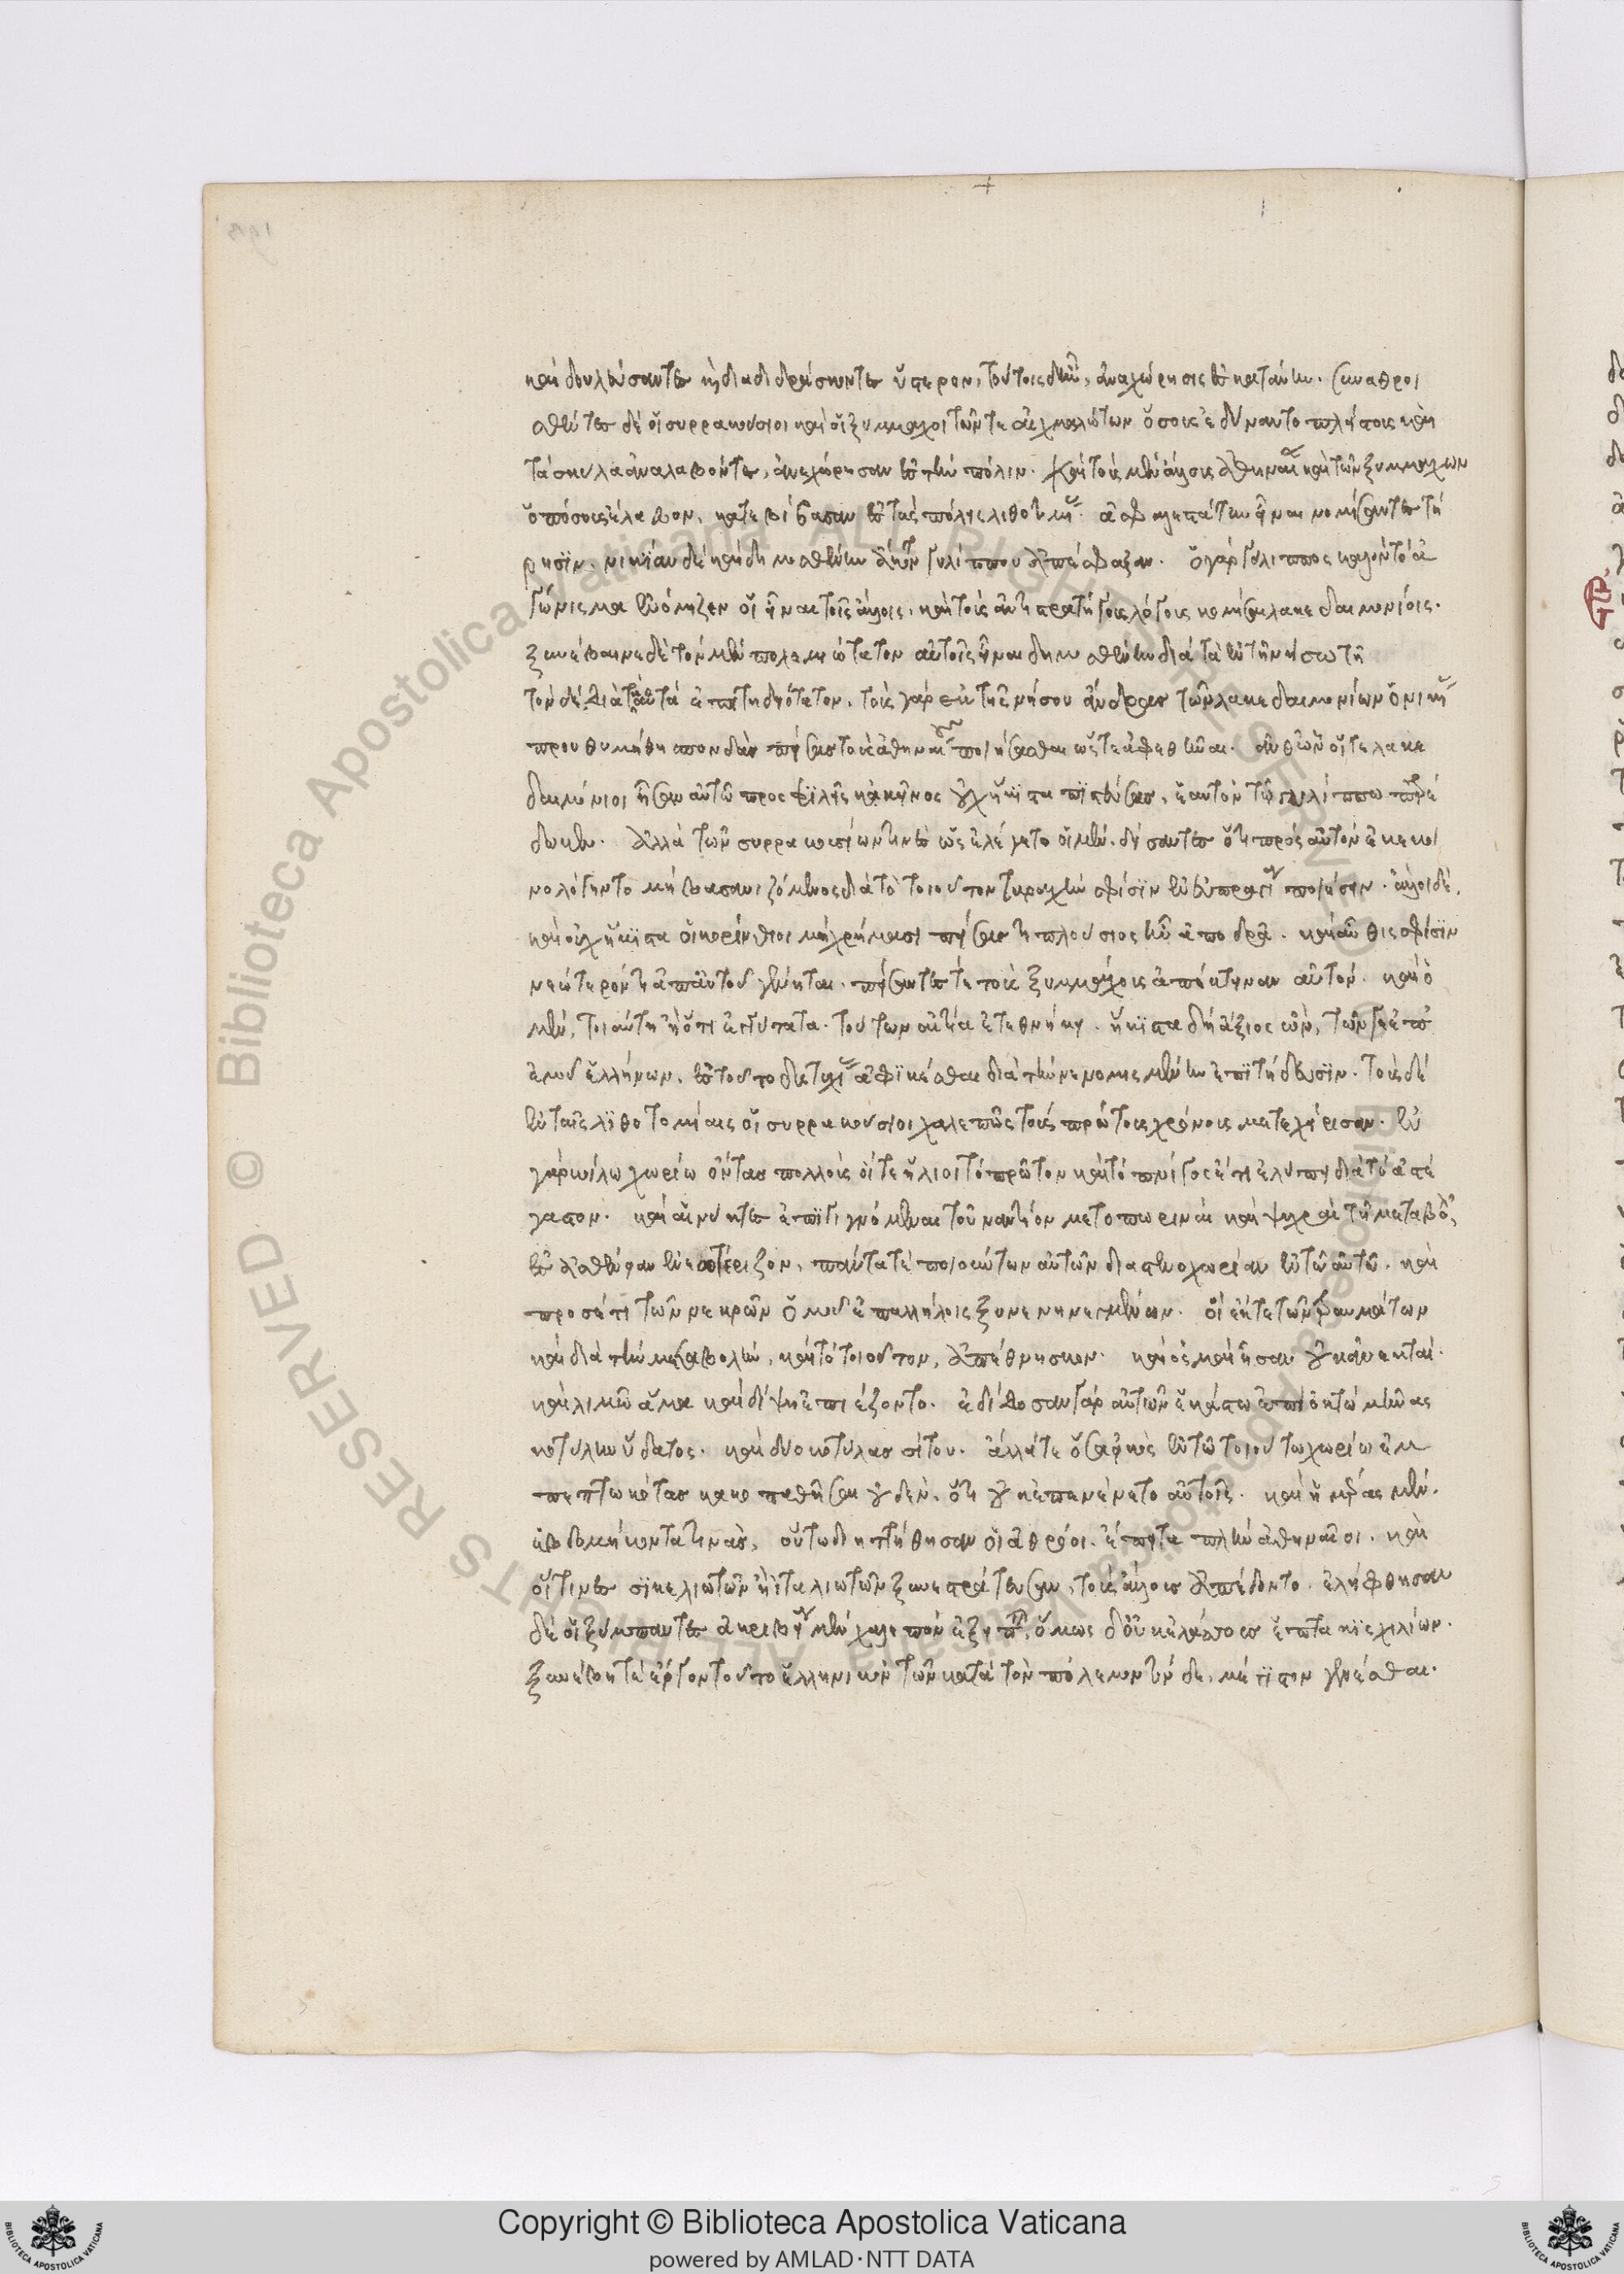 καὶ δουλεύσαντες καὶ διαδιδράσκοντες ὕστερον, τούτοις δ' ἦν, ἀναχώρησις ἐς κατάνην. ξυναθροι
σθέντες δὲ οἱ συρρακούσιοι καὶ οἱ ξύμμαχοι τῶν τε αἰχμαλώτων ὅσους ἐδύναντο πλείστους καὶ
τὰ σκῦλα ἀναλαβόντες, ἀνεχώρησαν ἐς τὴν πόλιν. καὶ τοὺς μὲν ἄλλους ἀθηναίων καὶ τῶν ξυμμάχων
ὁπόσους ἔλαβον, κατεβίβασαν ἐς τὰς λιθοτομίας. ἀσφαλεστάτην εἶναι νομίσαντες τή
ρησιν. νικίαν δὲ καὶ δημοσθένην ἄκοντος γυλίππου ἀπέσφαξαν. ὁ γὰρ γύλιππος καλὸν τὸ ἀ
γώνισμα ἐνόμιζεν οἱ εἶναι τοῖς ἄλλοις, καὶ τοὺς ἀντιστρατήγους κομίσαι λακεδαιμονίοις.
ξυνέβαινε δὲ τὸν μὲν πολεμιώτατον αὐτοῖς εἶναι δημοσθένην διὰ τὰ ἐν τῇ νήσῳ τῇ
τὸν δὲ διὰ τὰ αὐτὰ ἐπιτηδειότατον. τοὺς γὰρ ἐκ τῆς νήσου ἄνδρας τῶν λακεδαιμονίων ὁ νικίας
προυθυμήθη σπονδὰς πείσας τοὺς ἀθηναίους ποιήσασθαι ὥστε ἀφεθῆναι. ἀνθ' ὧν οἵ τε λακε
δαιμόνιοι ἦσαν αὐτῷ προσφιλεῖς κἀκεῖνος οὐχ ἥκιστα πιστεύσας, ἑαυτὸν τῷ γυλίππῳ παρέ
δωκεν. ἀλλὰ τῶν συρρακοσίων τινὲς ὡς ἐλέγετο οἱ μὲν, δείσαντες ὅτι πρὸς αὐτὸν ἐκεκοι
νολόγηντο μὴ βασανιζόμενος διὰ τὸ τοιοῦτον ταραχὴν σφίσιν ἐν εὐπραγίᾳ ποιήσῃ. ἄλλοι δὲ,
καὶ οὐχ ἥκιστα οἱ κορίνθιοι μὴ χρήμασι πείσας τινὰς πλούσιος ἦν ἀποδρᾷ. καὶ αὖθις σφίσιν
νεώτερόν τι ἀπ' αὐτοῦ γένηται. πείσαντές τε τοὺς ξυμμάχους ἀπέκτειναν αὐτόν. καὶ ὁ
μὲν, τοιαύτῃ ἢ ὅτι ἐγγύτατα τούτων αἰτίᾳ ἐτεθνήκει. ἥκιστα δὴ ἄξιος ὢν, τῶν γε ἐπ'
ἐμοῦ ἑλλήνων, ἐς τοῦτο δυστυχίας ἀφικέσθαι διὰ τὴν νενομισμένην ἐπιτήδευσιν. τοὺς δὲ
ἐν ταῖς λιθοτομίαις οἱ συρρακούσιοι χαλεπῶς τοὺς πρώτους χρόνους μετεχείρισαν. ἐν
γὰρ κοίλῳ χωρίῳ ὄντας πολλοὺς οἵ τε ἥλιοι τὸ πρῶτον καὶ τὸ πνῖγος ἔτι ἐλύπει διὰ τὸ ἀστέ
γαστον. καὶ αἱ νύκτες ἐπιγιγνόμεναι τοὐναντίον μετοπωριναὶ καὶ ψυχραὶ τῇ μεταβολῇ,
ἐς ἀσθένειαν ἐνεωτέριζον, πάντα τε ποιούντων αὐτῶν διὰ στενοχωρίαν ἐν τῷ αὐτῷ. καὶ
προσέτι τῶν νεκρῶν ὁμοῦ ἐπ' ἀλλήλοις ξυννενημένων. οἳ ἔκ τε τῶν τραυμάτων
καὶ διὰ τὴν μεταβολὴν, καὶ τὸ τοιοῦτον, ἀπέθνησκον. καὶ ὀσμαὶ ἦσαν οὐκ ἀνεκταί.
καὶ λιμῷ ἅμα καὶ δίψῃ ἐπιέζοντο. ἐδίδοσαν γὰρ αὐτῶν ἑκάστῳ ἐπὶ ὀκτὼ μῆνας
κοτύλην ὕδατος. καὶ δύο κοτύλας σίτου. ἄλλα τε ὅσα εἰκὸς ἐν τῷ τοιούτῳ χωρίῳ ἐμ
πεπτωκότας κακοπαθῆσαι οὐδὲν, ὅτι οὐκ ἐπεγένετο αὐτοῖς. καὶ ἡμέρας μὲν,
ἑβδομήκοντά τινας, οὕτω διῃτήθησαν οἱ ἀθρόοι. ἔπειτα πλὴν ἀθηναίων. καὶ
οἵτινες σικελιωτῶν ἢ ἰταλιωτῶν ξυνεστράτευσαν, τοὺς ἄλλους ἀπέδοντο. ἐλήφθησαν
δὲ οἱ ξύμπαντες ἀκριβείᾳ μὲν χαλεπὸν ἐξειπεῖν, ὅμως δ' οὐκ ἐλάσσους ἑπτακισχιλίων.
ξυνέβη τε ἔργον τοῦτο ἑλληνικὸν τῶν κατὰ τὸν πόλεμον τόνδε, μέγιστον γενέσθαι.
Copyright © Biblioteca Apostolica Vaticana
powered by AMLAD·NTT DATA